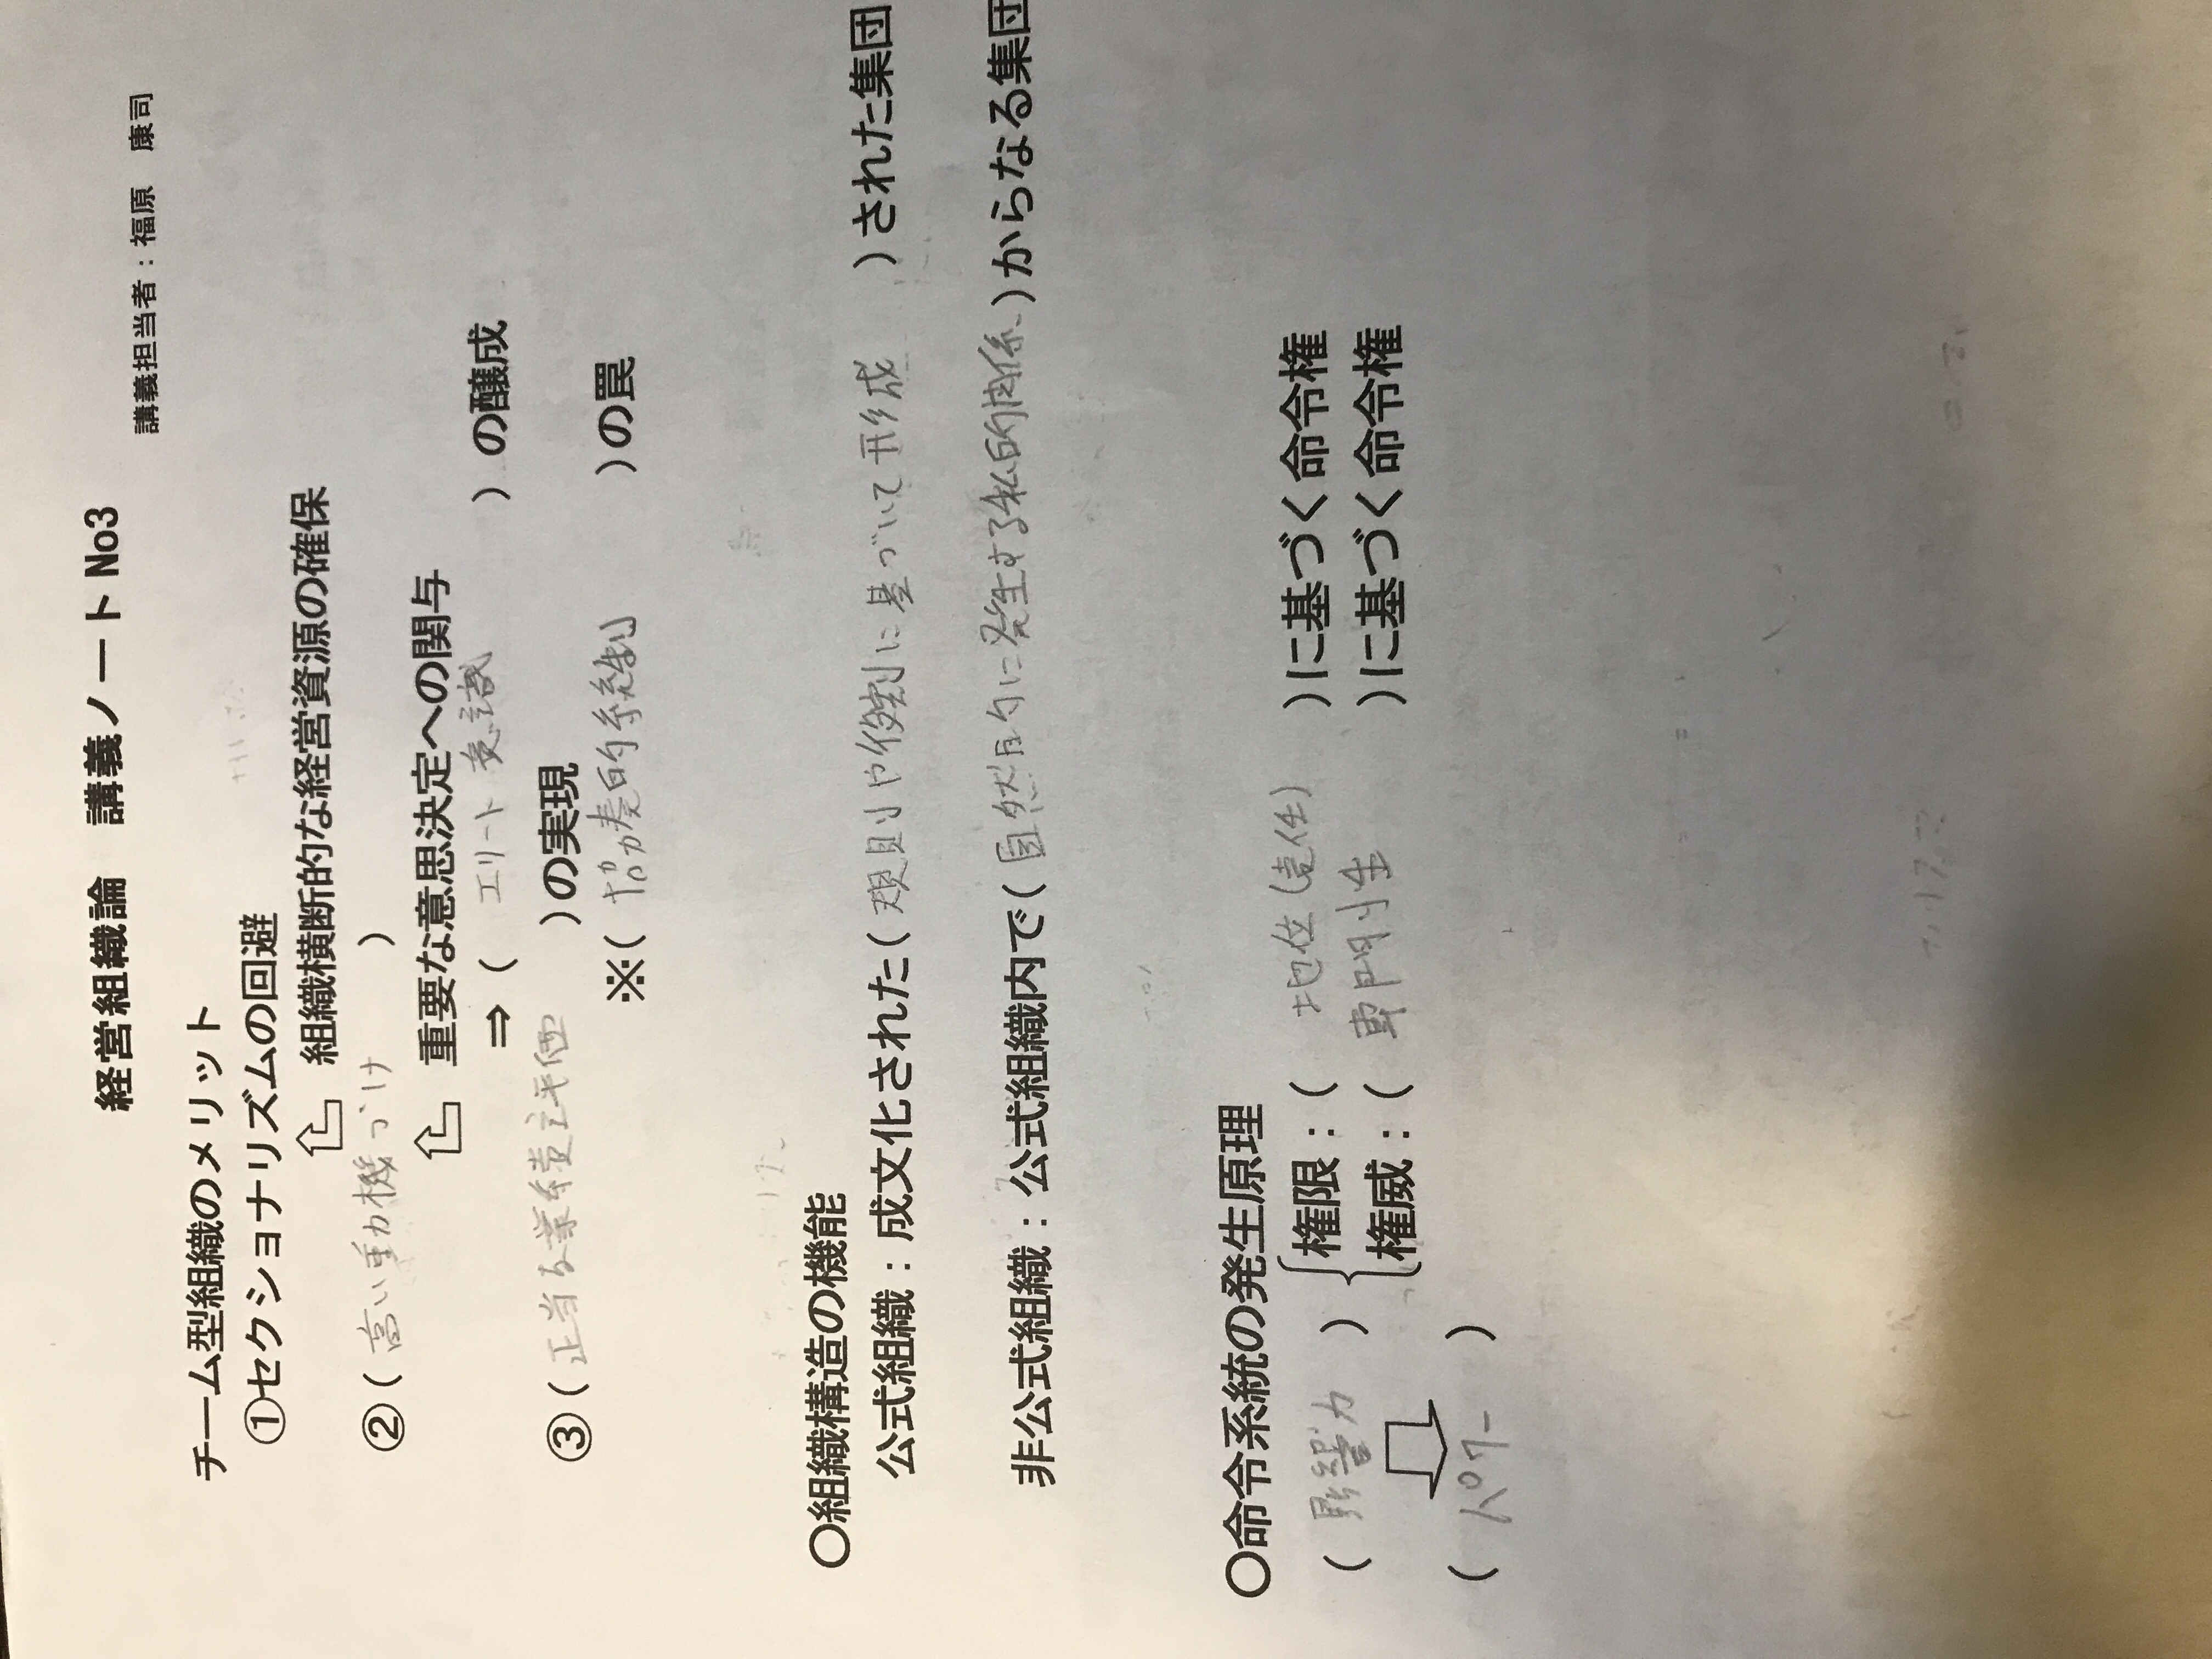 経営組織論　講義ノート No3
講義担当者：福原　康司
チーム型組織のメリット
①セクショナリズムの回避
組織横断的な経営資源の確保
②（高い動機づけ）
重要な意思決定への関与
⇒（エリート意識）の醸成
③（正当な業績評価）の実現
※（協奏的統制）の罠
〇組織構造の機能
公式組織：成文化された（規則や役割に基づいて形成）された集団
非公式組織：公式組織内で（自然的に発生する私的関係）からなる集団
〇命令系統の発生原理
権限：（地位（責任））に基づく命令権
（影響力）
権威：（専門性）に基づく命令権
（パワー）